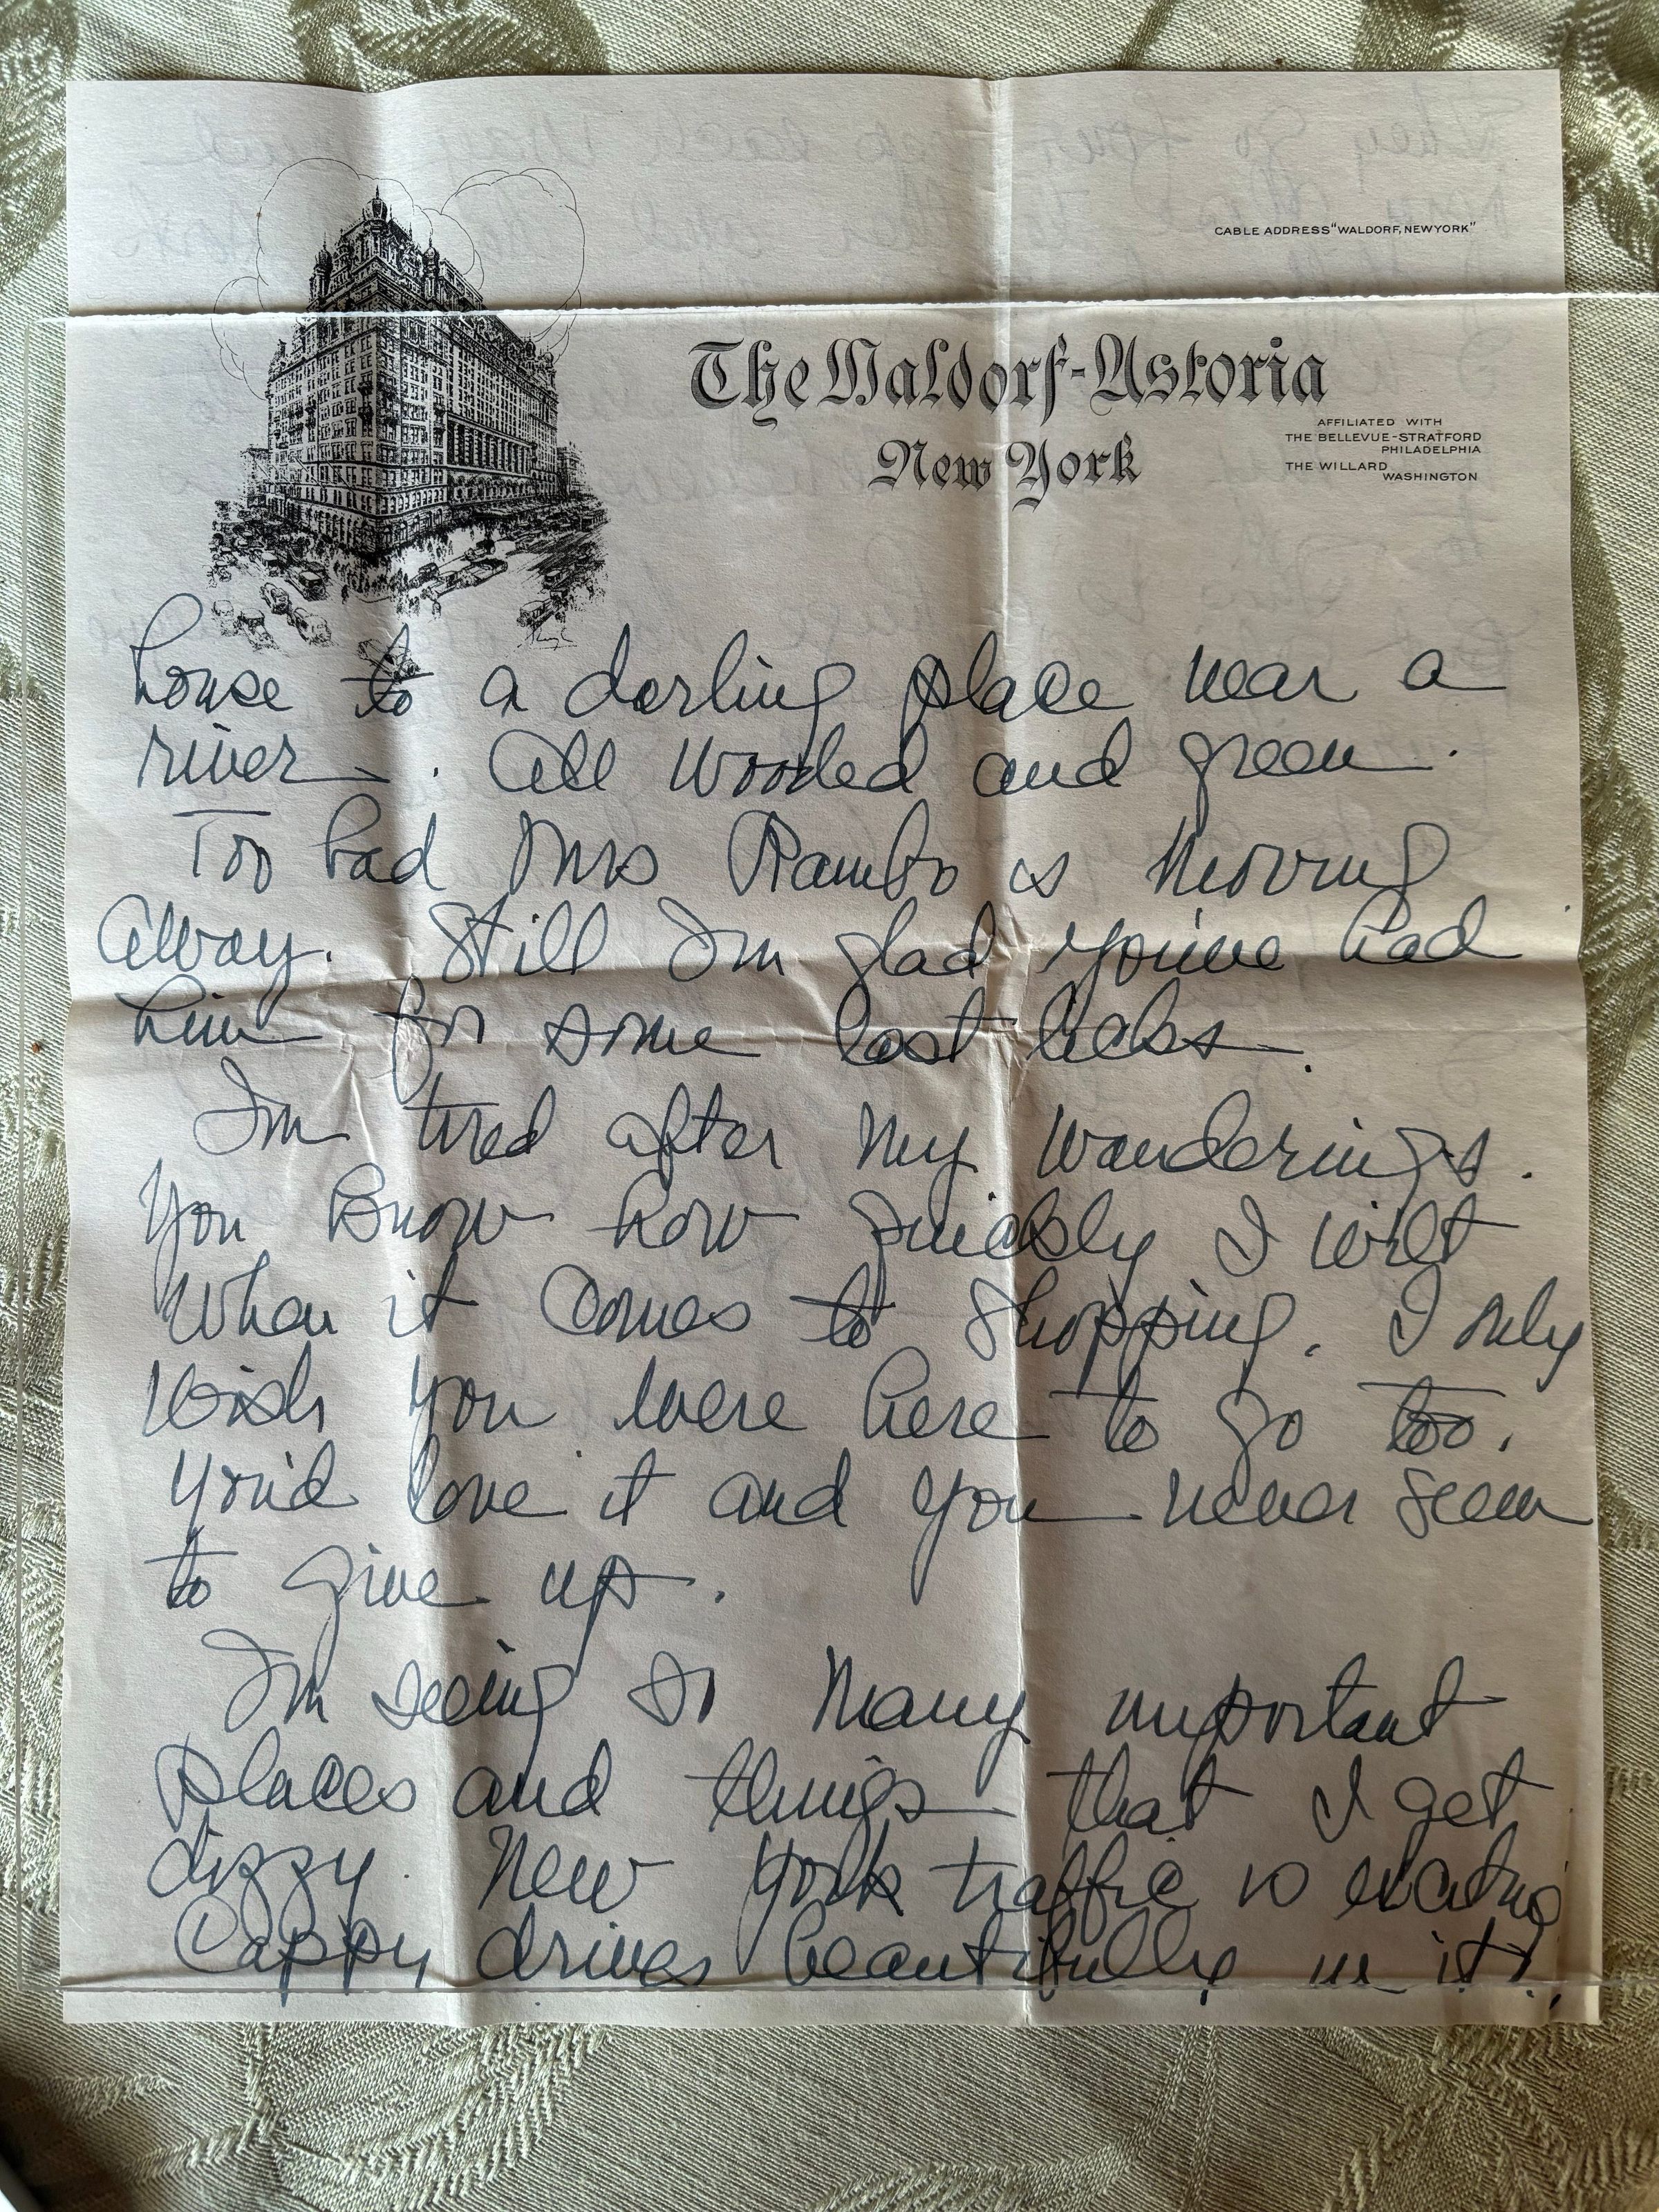 CABLE ADDRESS "WALDORF, NEWYORK"
The Waldorf-Astoria
New York
AFFILIATED WITH
THE BELLEVUE-STRATFORD
PHILADELPHIA
THE WILLARD
WASHINGTON
house to a darling place near a
river. All wooded and green.
Too bad Mrs Rambo is moving
away. Still I'm glad you've had
him for some last licks.
I'm tired after my wanderings.
You know how quickly I wilt
when it comes to shopping. I only
wish you were here to go too.
You'd love it and you never seem
to give up.
I'm seeing so many important
places and things that I get
dizzy. New York traffic is exciting
Cappy drives beautifully in it!